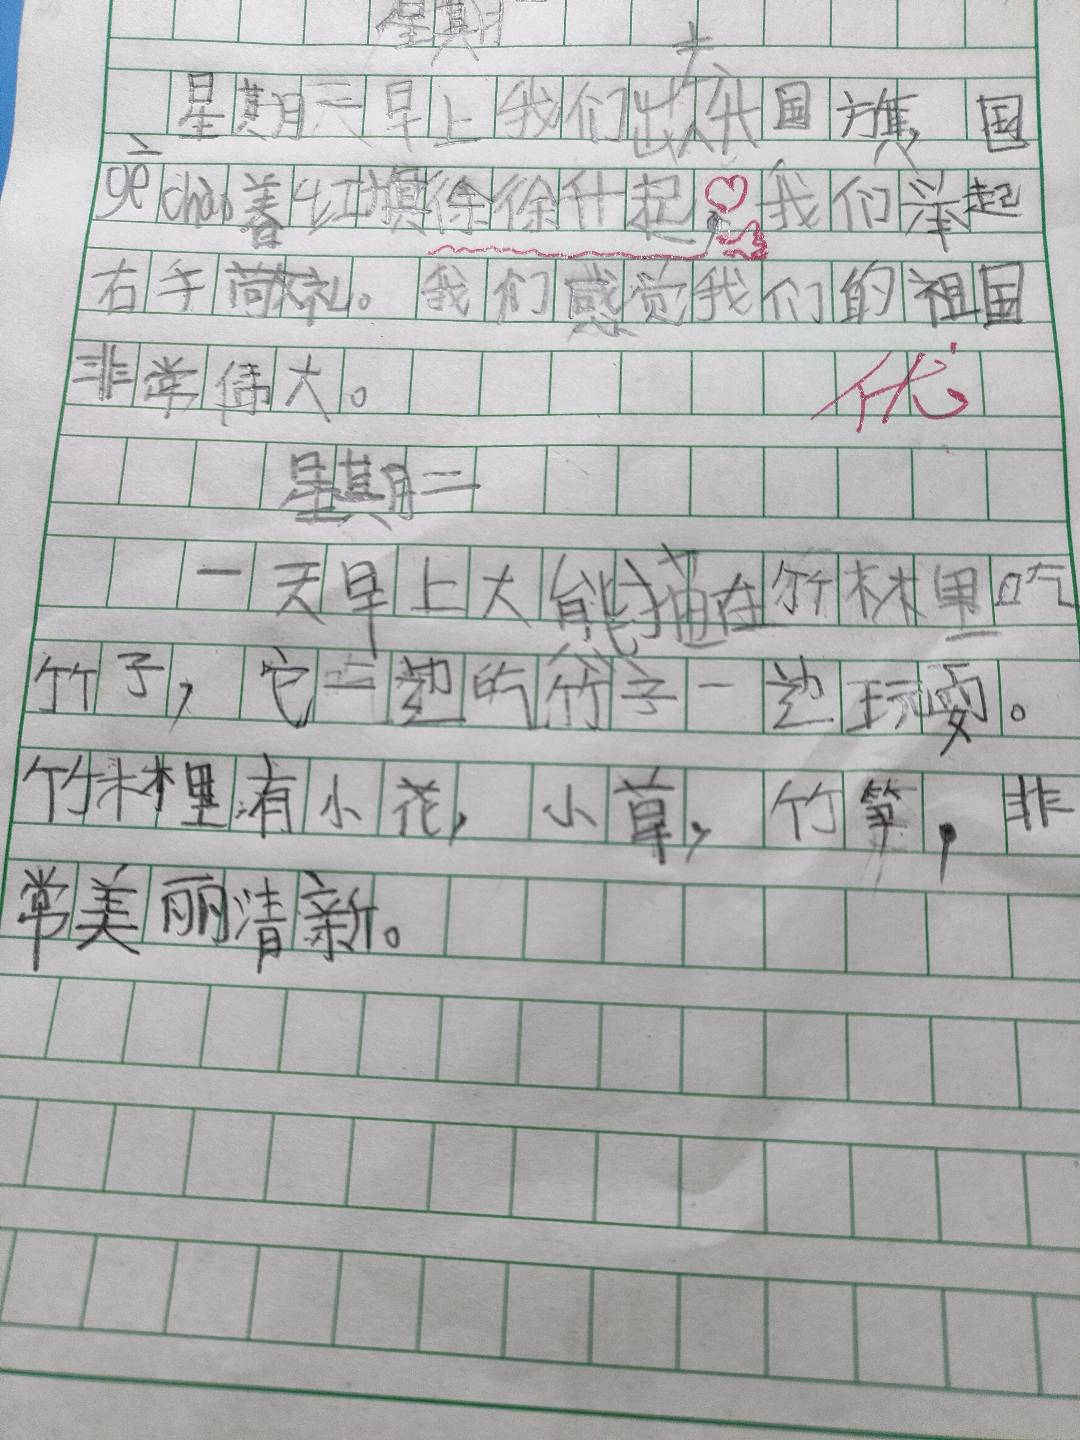 星期
去
星期三早上我们出大升国旗，国
gē chàn着红旗徐徐升起，我们举起
右手敬礼。我们感觉我们的祖国
非常伟大。
优
星期二
一天早上大熊猫在竹林里吃
竹子，它一边吃竹子一边玩耍。
竹林里有小花，小草，竹笋，非
常美丽清新。